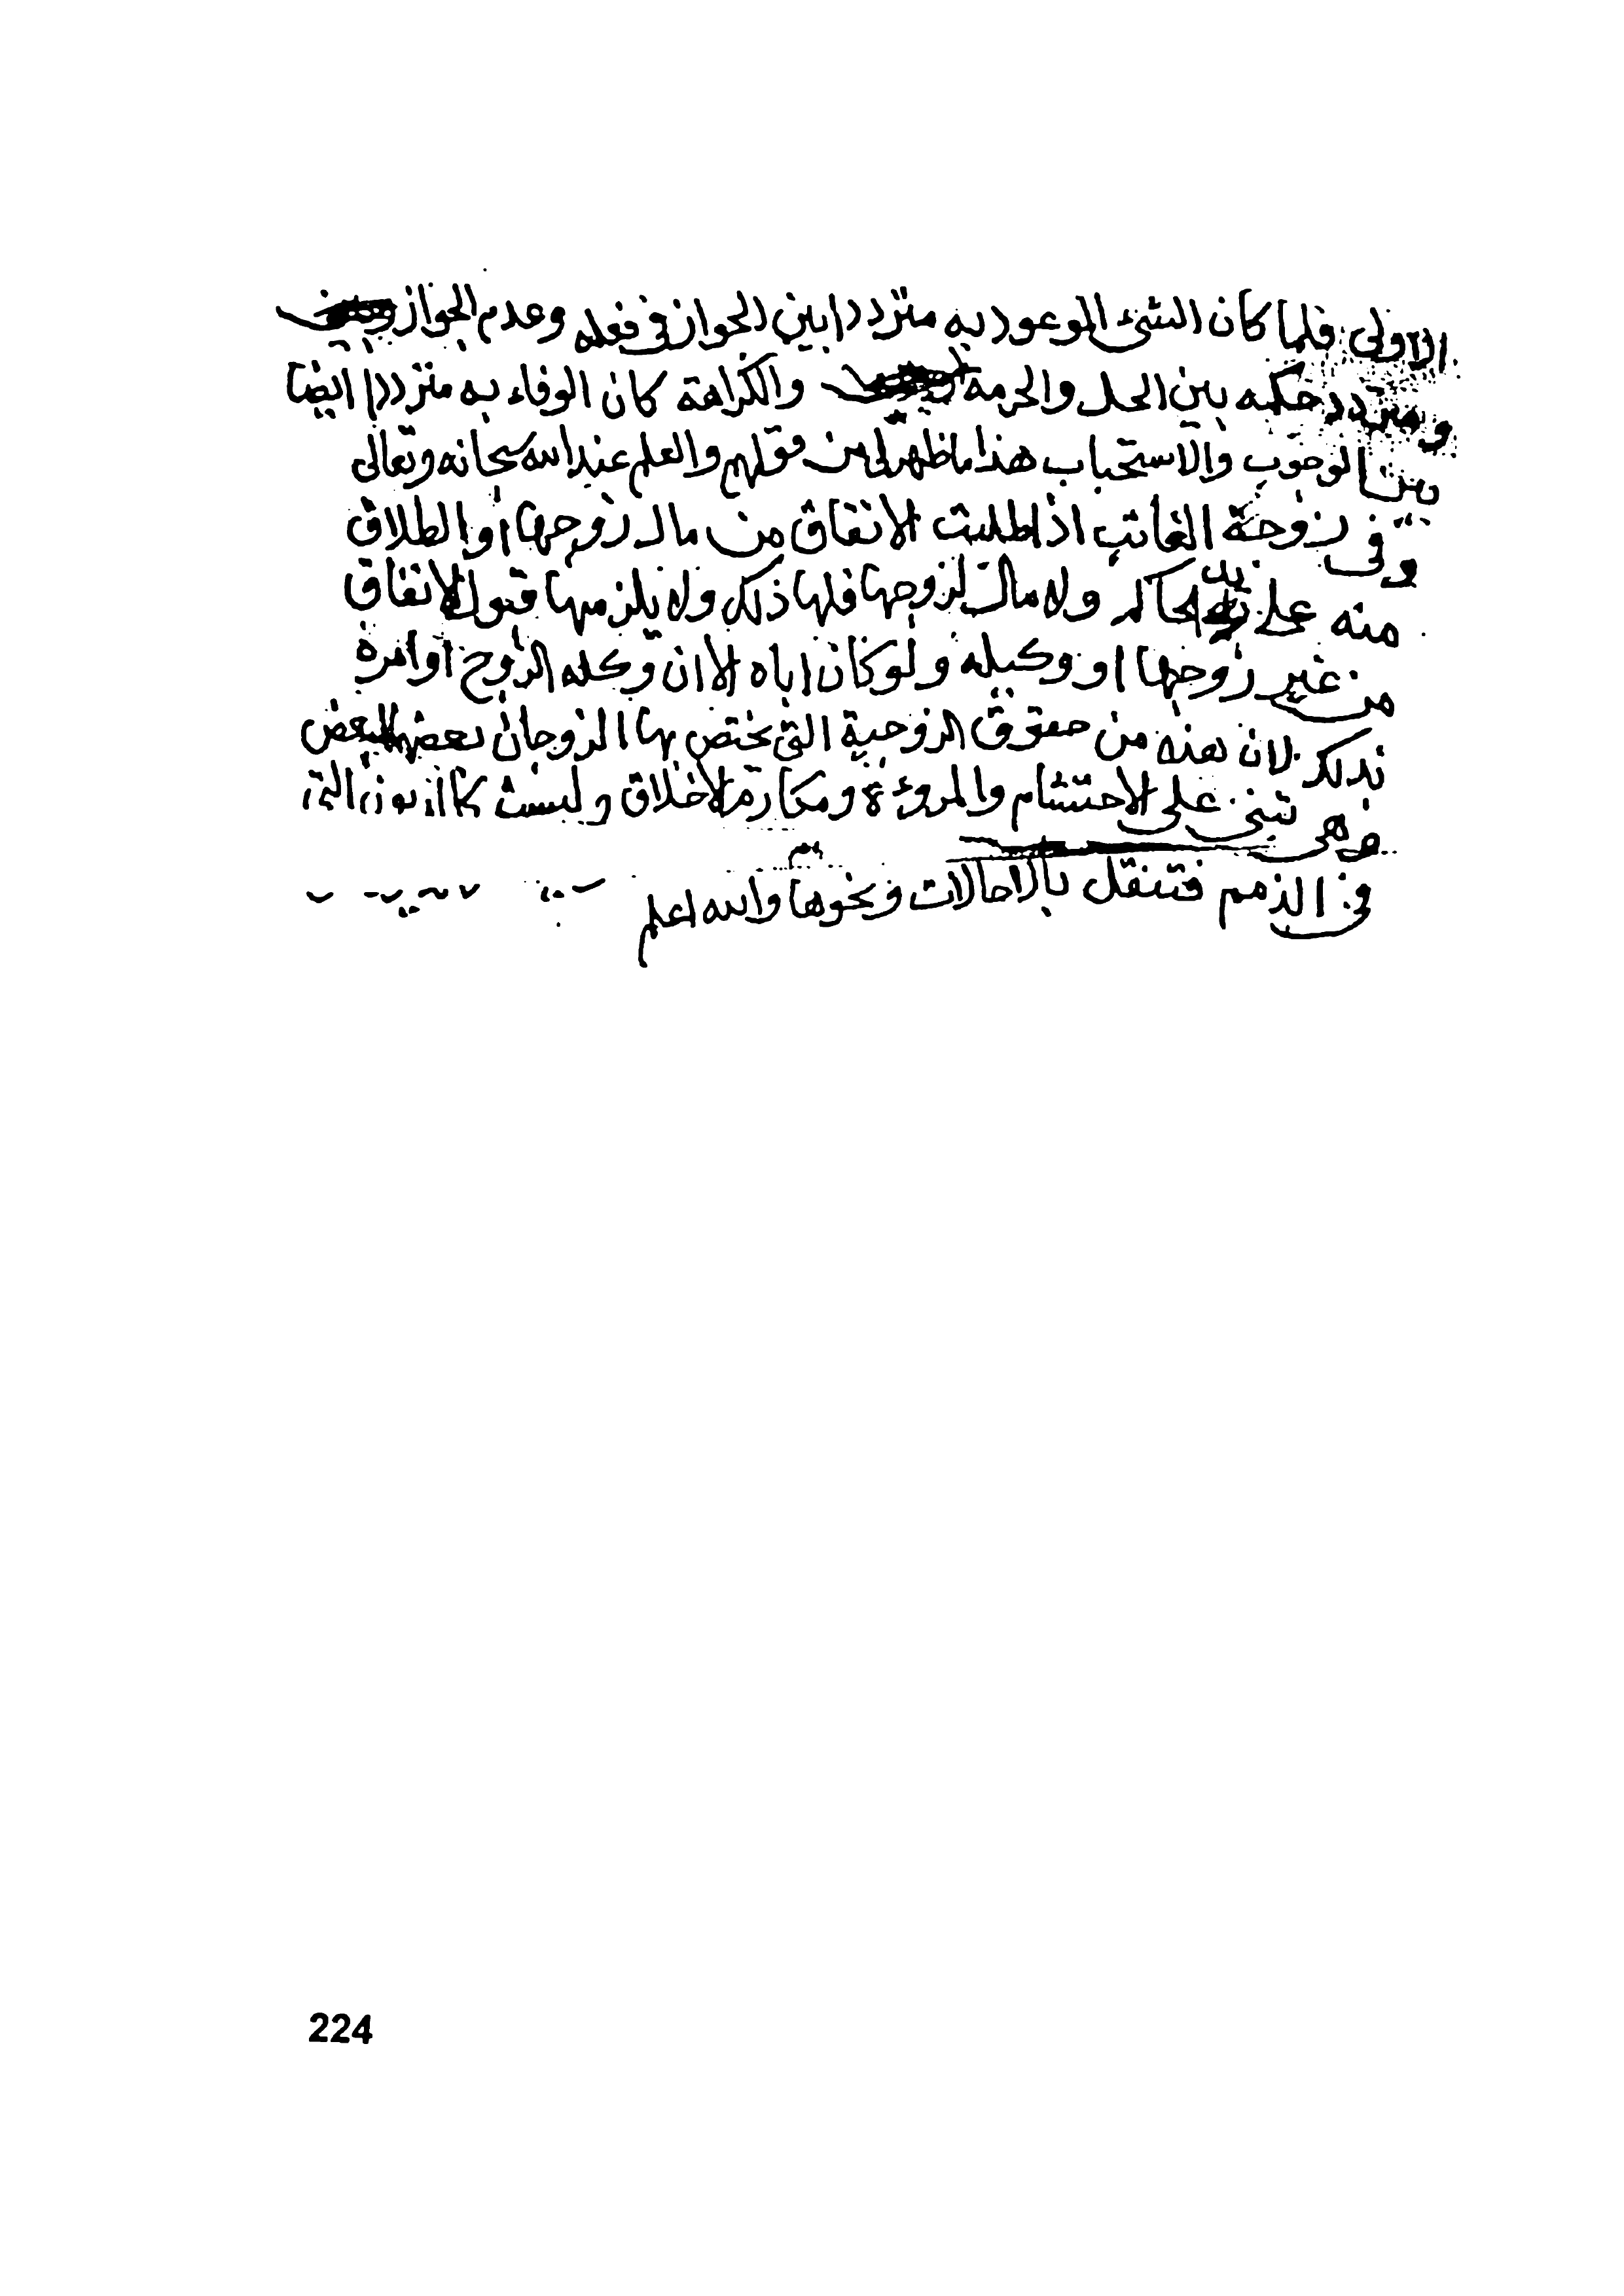 الاولى فلما كان الشئ الموعود به مترددا بين الجواز في فعله وعدم الجواز
و متردد حكمه بين الحل والحرمة والكراهة كان الوفاء به مترددا ايضا
بين الوجوب والاستحباب هذا ما ظهر لي من قولهم والعلم عند الله سبحانه وتعالى
وفي زوجة الغائب اذا طلبت الانفاق من مال زوجها او الطلاق
منه على يد الحاكم ولا مال لزوجها فلها ذلك ولا يلزمها قبول الانفاق
من غير زوجها او وكيله ولو كان اباه الا ان وكله الزوج او امره
بذلك لان هذه من حقوق الزوجية التي يختص بها الزوجان بعضها لبعض
وهي تبنى على الاحتشام والمروءة ومكارم الاخلاق وليست كالديون التي
في الذمم فتنقل بالاحالات ونحوها والله اعلم
224